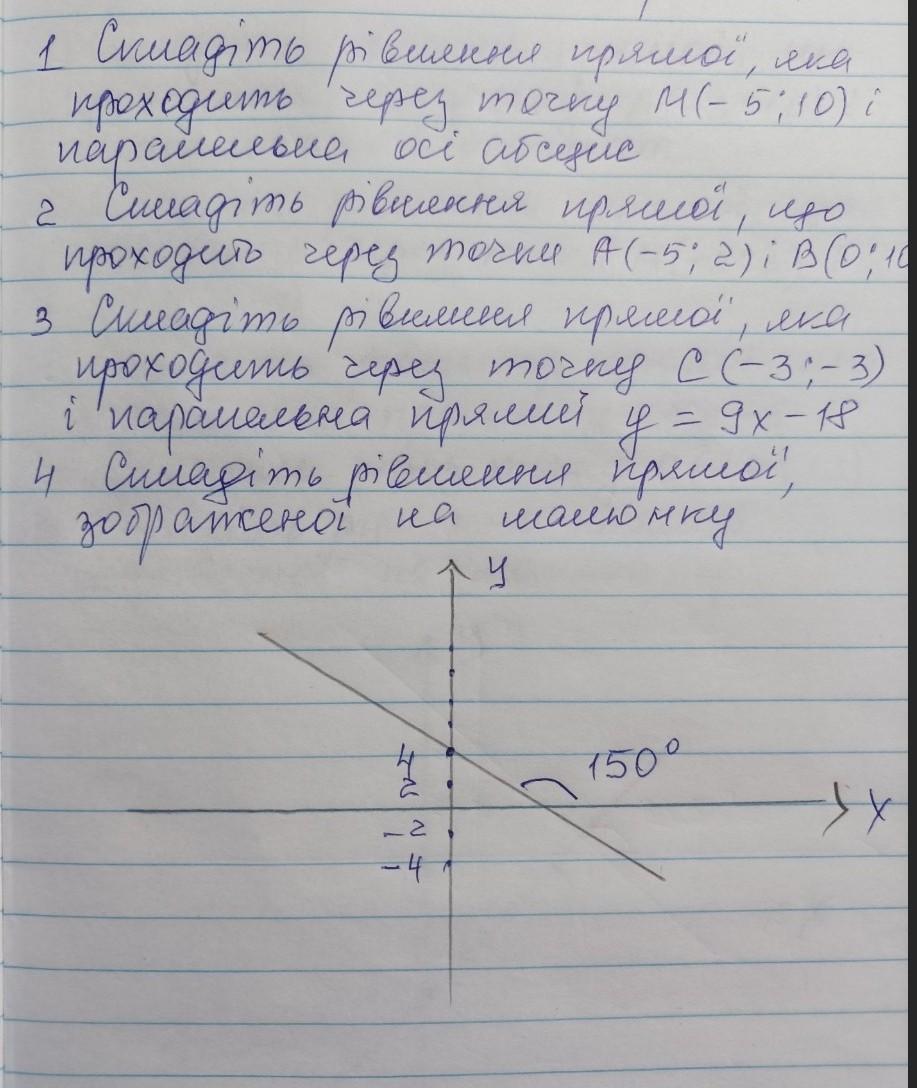 1 Складіть рівняння прямої, яка
проходить через точку М(-5;10) і
паралельна осі абсцис
2 Складіть рівняння прямої, що
проходить через точки А(-5; 2) і В(0;10
3 Складіть рівняння прямої, яка
проходить через точку С(-3;-3)
і паралельна прямій y = 9x - 18
4 Складіть рівняння прямої,
зображеної на малюнку
y
4
150°
2
x
-2
-4